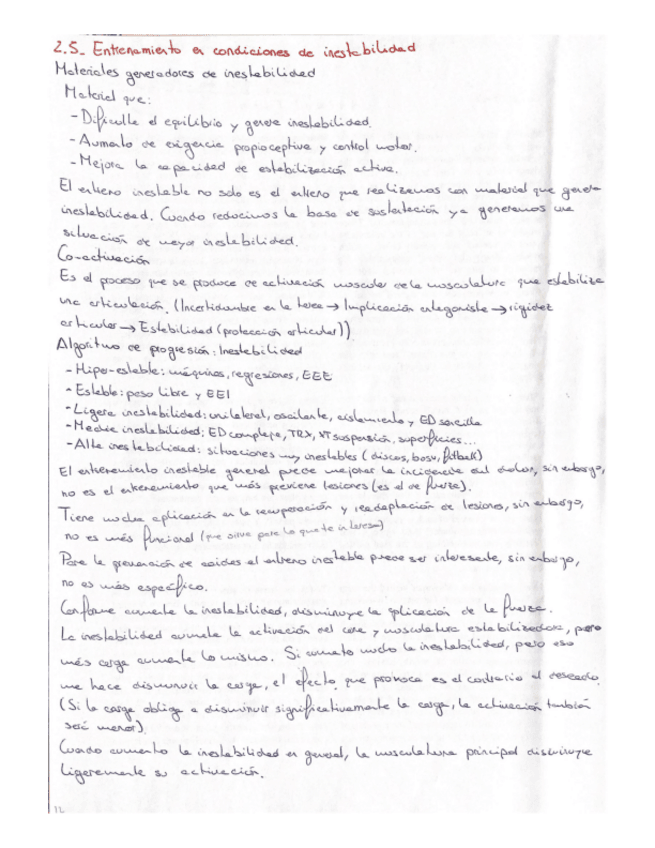 2.5- Entrenamiento en condiciones de inestabilidad
Materiales generadores de inestabilidad
Material que:
- Dificulte el equilibrio y genere inestabilidad.
- Aumento de exigencia propioceptiva y control motor.
- Mejora la capacidad de estabilización activa.
El entreno inestable no solo es el entreno que realizamos con material que genera
inestabilidad. Cuando reducimos la base de sustentación ya generamos una
situación de mayor inestabilidad.
Co-activación
Es el proceso que se produce de activación muscular de la musculatura que estabiliza
una articulación. (Incertidumbre en la tarea → Implicación antagonista → rigidez
articular → Estabilidad (protección articular))
Algoritmo de progresión: Inestabilidad
- Hiper-estable: máquinas, regresiones, EEE
- Estable: peso libre y EEI
- Ligera inestabilidad: unilateral, oscilante, aislamiento y ED sencilla
- Media inestabilidad: ED compleja, TRX, suspensión, superficies...
- Alta inestabilidad: situaciones muy inestables (discos, bosu, fitball)
El entrenamiento inestable general puede mejorar la incidencia del dolor, sin embargo,
no es el entrenamiento que más previene lesiones (es el de fuerza).
Tiene mucha aplicación en la recuperación y readaptación de lesiones, sin embargo,
no es más funcional (que sirve para lo que te interesa)
Para la prevención de caídas el entreno inestable puede ser interesante, sin embargo,
no es más específico.
Conforme aumenta la inestabilidad, disminuye la aplicación de la fuerza.
La inestabilidad aumenta la activación del core y musculatura estabilizadora, pero
más carga aumenta lo mismo. Si aumento mucho la inestabilidad, pero eso
me hace disminuir la carga, el efecto que provoca es el contrario al deseado.
(Si la carga obliga a disminuir significativamente la carga, la activación también
será menor).
Cuando aumento la inestabilidad en general, la musculatura principal disminuye
ligeramente su activación.
12